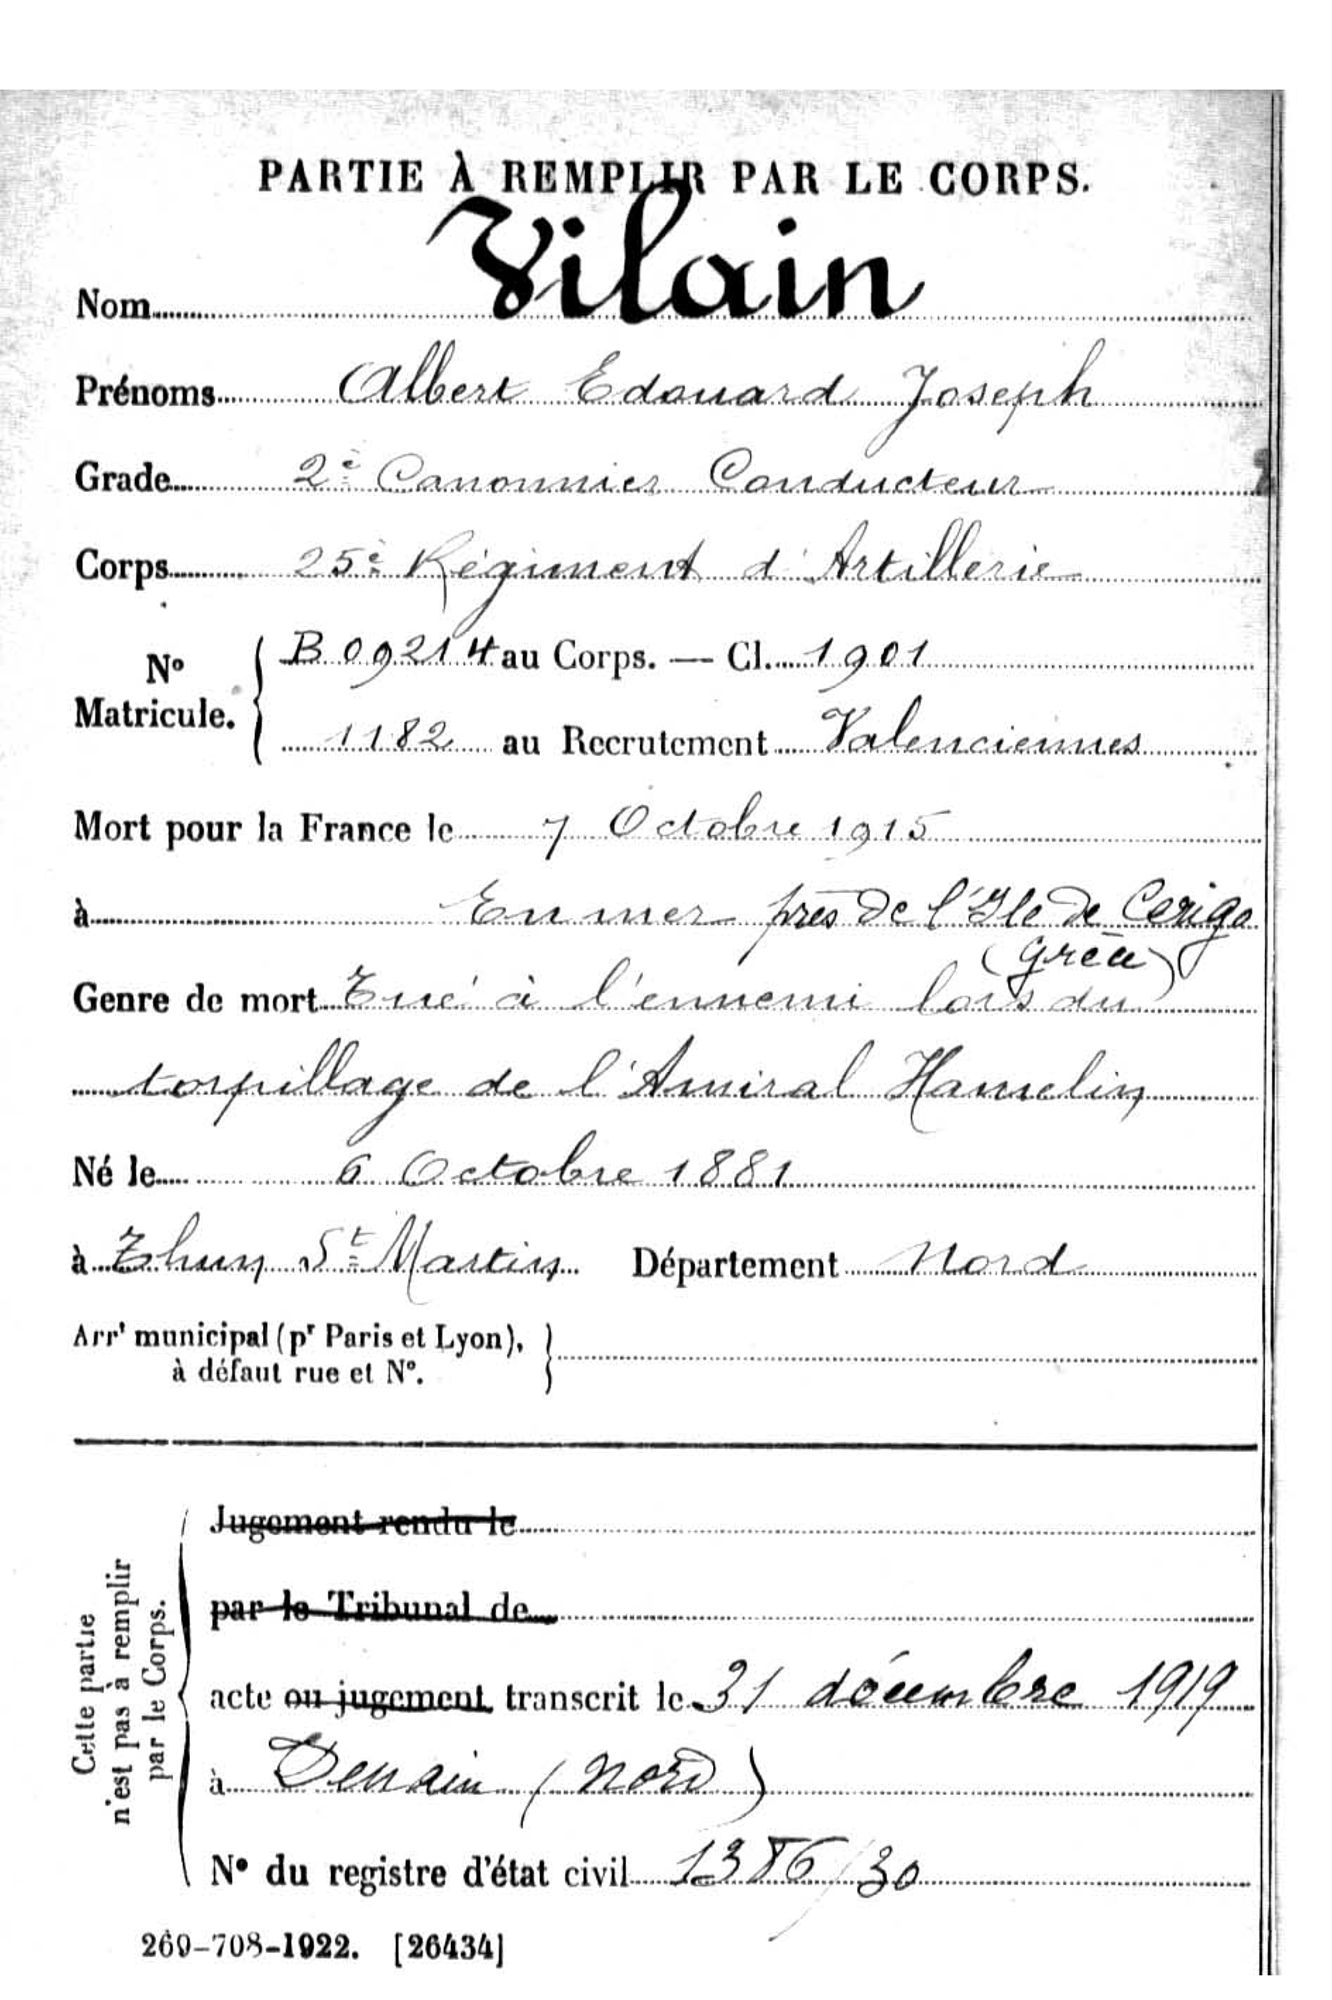 PARTIE À REMPLIR PAR LE CORPS.
Nom Vilain
Prénoms Albert Edouard Joseph
Grade 2e Canonnier Conducteur
Corps 25e Régiment d'Artillerie
No Matricule. { B 09214 au Corps. — Cl. 1901
1182 au Recrutement Valenciennes
Mort pour la France le 7 Octobre 1915
à En mer près de l'Ile de Cerigo
(Grèce)
Genre de mort Tué à l'ennemi lors du
torpillage de l'Amiral Hamelin
Né le 6 Octobre 1881
à Thun St Martin Département Nord
Arrt municipal (pr Paris et Lyon),
à défaut rue et No. }
Cette partie
n'est pas à remplir
par le Corps.
Jugement rendu le
par le Tribunal de
acte ou jugement transcrit le 31 décembre 1919
à Denain (Nord)
No du registre d'état civil 1386/30
269-708-1922. [26434]